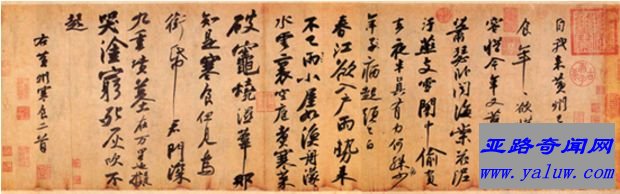 自我来黄州已
食年〻欲惜
容惜今年又苦
萧瑟卧闻海棠花泥
汙燕支雪闇中偷負
去夜半真有力何殊少
年子病起須已白
春江欲入户雨势来
不已雨小屋如渔舟濛
水雲裏空庖煮寒菜
破竈燒溼葦那
知是寒食但見烏
銜帋君門深
九重墳墓在万里也擬
哭塗窮死灰吹不
起
右黄州寒食二首
亚路奇闻网
www.yaluw.com